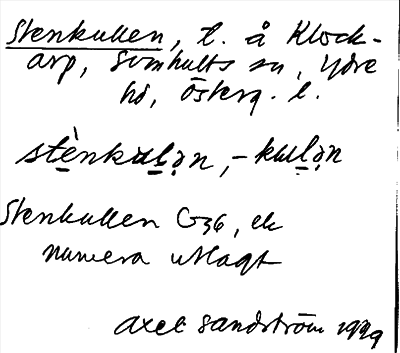 Stenkullen, t. å Klock-
arp, Svinhults sn, Ydre
hd, Österg. l.
stènkulən, -kulən
Stenkullen G36, ek
numera utlagt
Axel Sandström 1929